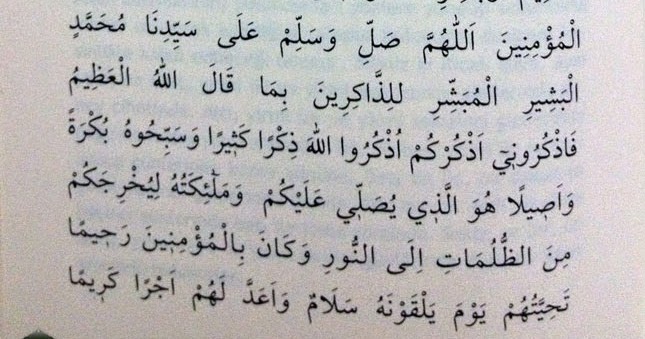 الْمُؤْمِنِينَ اَللّٰهُمَّ صَلِّ وَسَلِّمْ عَلَى سَيِّدِنَا مُحَمَّدٍ
الْبَشِيرِ الْمُبَشِّرِ لِلذَّاكِرِينَ بِمَا قَالَ اللهُ الْعَظِيمُ
فَاذْكُرُونِيٓ اَذْكُرْكُمْ اُذْكُرُوا اللهَ ذِكْرًا كَثِيرًا وَسَبِّحُوهُ بُكْرَةً
وَاَصِيلًا هُوَ الَّذِي يُصَلِّي عَلَيْكُمْ وَمَلٰٓئِكَتُهُ لِيُخْرِجَكُمْ
مِنَ الظُّلُمَاتِ اِلَى النُّورِ وَكَانَ بِالْمُؤْمِنِينَ رَحِيمًا
تَحِيَّتُهُمْ يَوْمَ يَلْقَوْنَهُ سَلَامٌ وَاَعَدَّ لَهُمْ اَجْرًا كَرِيمًا